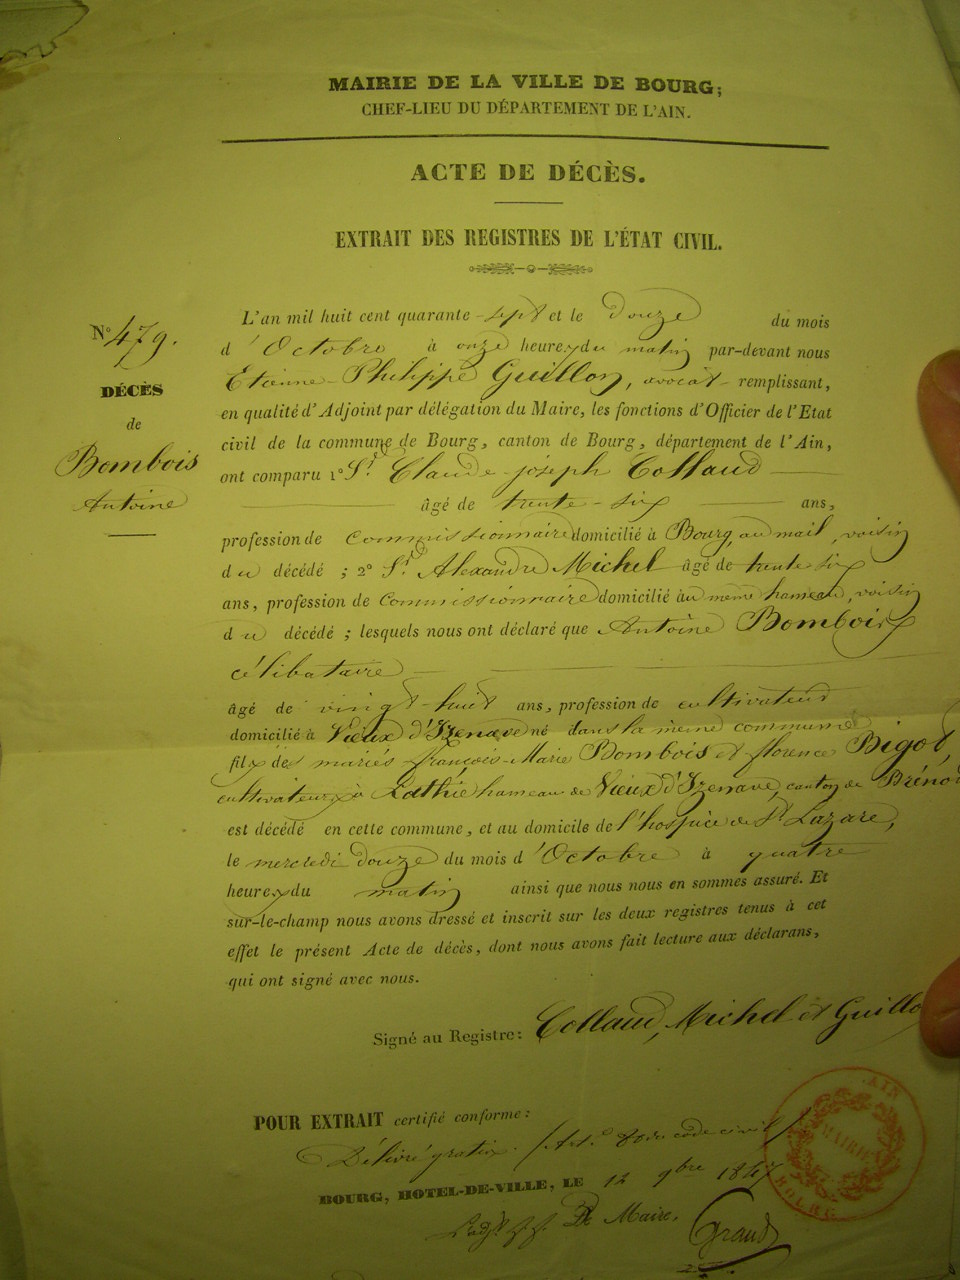 MAIRIE DE LA VILLE DE BOURG;
CHEF-LIEU DU DÉPARTEMENT DE L'AIN.
ACTE DE DÉCÈS.
EXTRAIT DES REGISTRES DE L'ÉTAT CIVIL.
N° 479.
DÉCÈS
de
Bombois
Antoine
L'an mil huit cent quarante-sept et le douze du mois
d'Octobre à onze heures du matin par-devant nous
Etienne-Philippe Guillon, avocat remplissant,
en qualité d'Adjoint par délégation du Maire, les fonctions d'Officier de l'Etat
civil de la commune de Bourg, canton de Bourg, département de l'Ain,
ont comparu 1° Sr. Claude-joseph Collaud
âgé de trente-six ans,
profession de Commissionnaire domicilié à Bourg, au mail, voisin
du décédé ; 2° Sr. Alexandre Michel âgé de trente six
ans, profession de Commissionnaire domicilié au même hameau, voisin
du décédé ; lesquels nous ont déclaré que Antoine Bombois
célibataire
âgé de vingt-huit ans, profession de cultivateur
domicilié à Vieux d'Izenave né dans la même commune
fils des mariés françois-Marie Bombois et florence Bigot
cultivateurs à hameau de Vieux d'Izenave, canton de Bréno
est décédé en cette commune, et au domicile de l'hospice de St Lazare,
le mercredi douze du mois d'Octobre à quatre
heures du matin ainsi que nous nous en sommes assuré. Et
sur-le-champ nous avons dressé et inscrit sur les deux registres tenus à cet
effet le présent Acte de décès, dont nous avons fait lecture aux déclarans,
qui ont signé avec nous.
Signé au Registre: Collaud, Michel et Guillo
POUR EXTRAIT certifié conforme:
Délivré gratis. (Art. 80 du code civil)
BOURG, HOTEL-DE-VILLE, LE 12 9bre 1847
Le Maire.
AIN
MAIRIE
BOURG